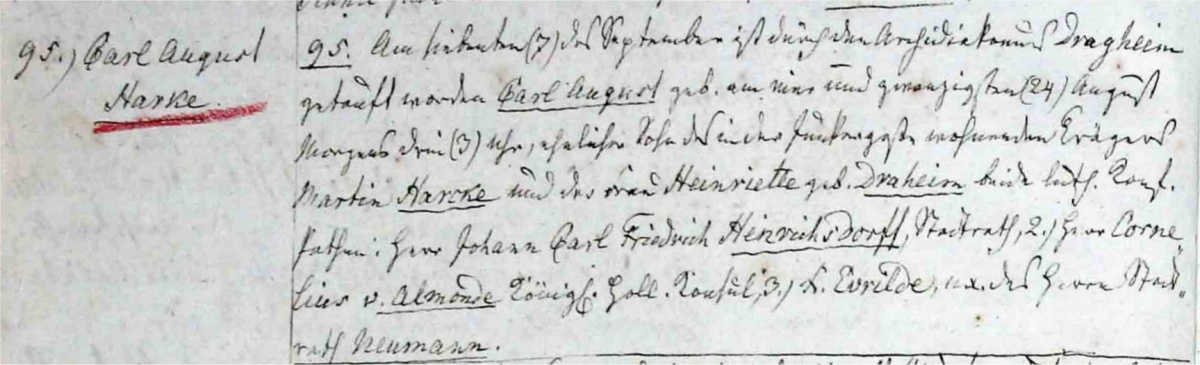 95.) Carl August
Harke.
95. Am siebenten (7) des September ist durch den Archidiakonus Dragheim
getauft worden Carl August geb. am vier und zwanzigsten (24) August
Morgens drei (3) Uhr, ehelicher Sohn des in der Junkergasse wohnenden Trägers
Martin Harcke und der Frau Heinriette geb. Draheim beide luth. Konf.
Pathen: Herr Johann Carl Friedrich Heinrichsdorff, Stadtrath, 2.) Herr Corne„
lius v. Almonde Königl. Holl. Konsul, 3.) F. Evrilde, ux. des Herrn Stadt„
rath Neumann.